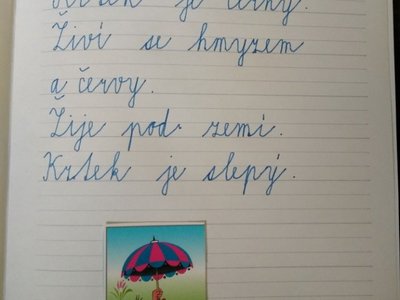 Krtek je černý.
Živí se hmyzem
a červy.
Žije pod zemí.
Krtek je slepý.